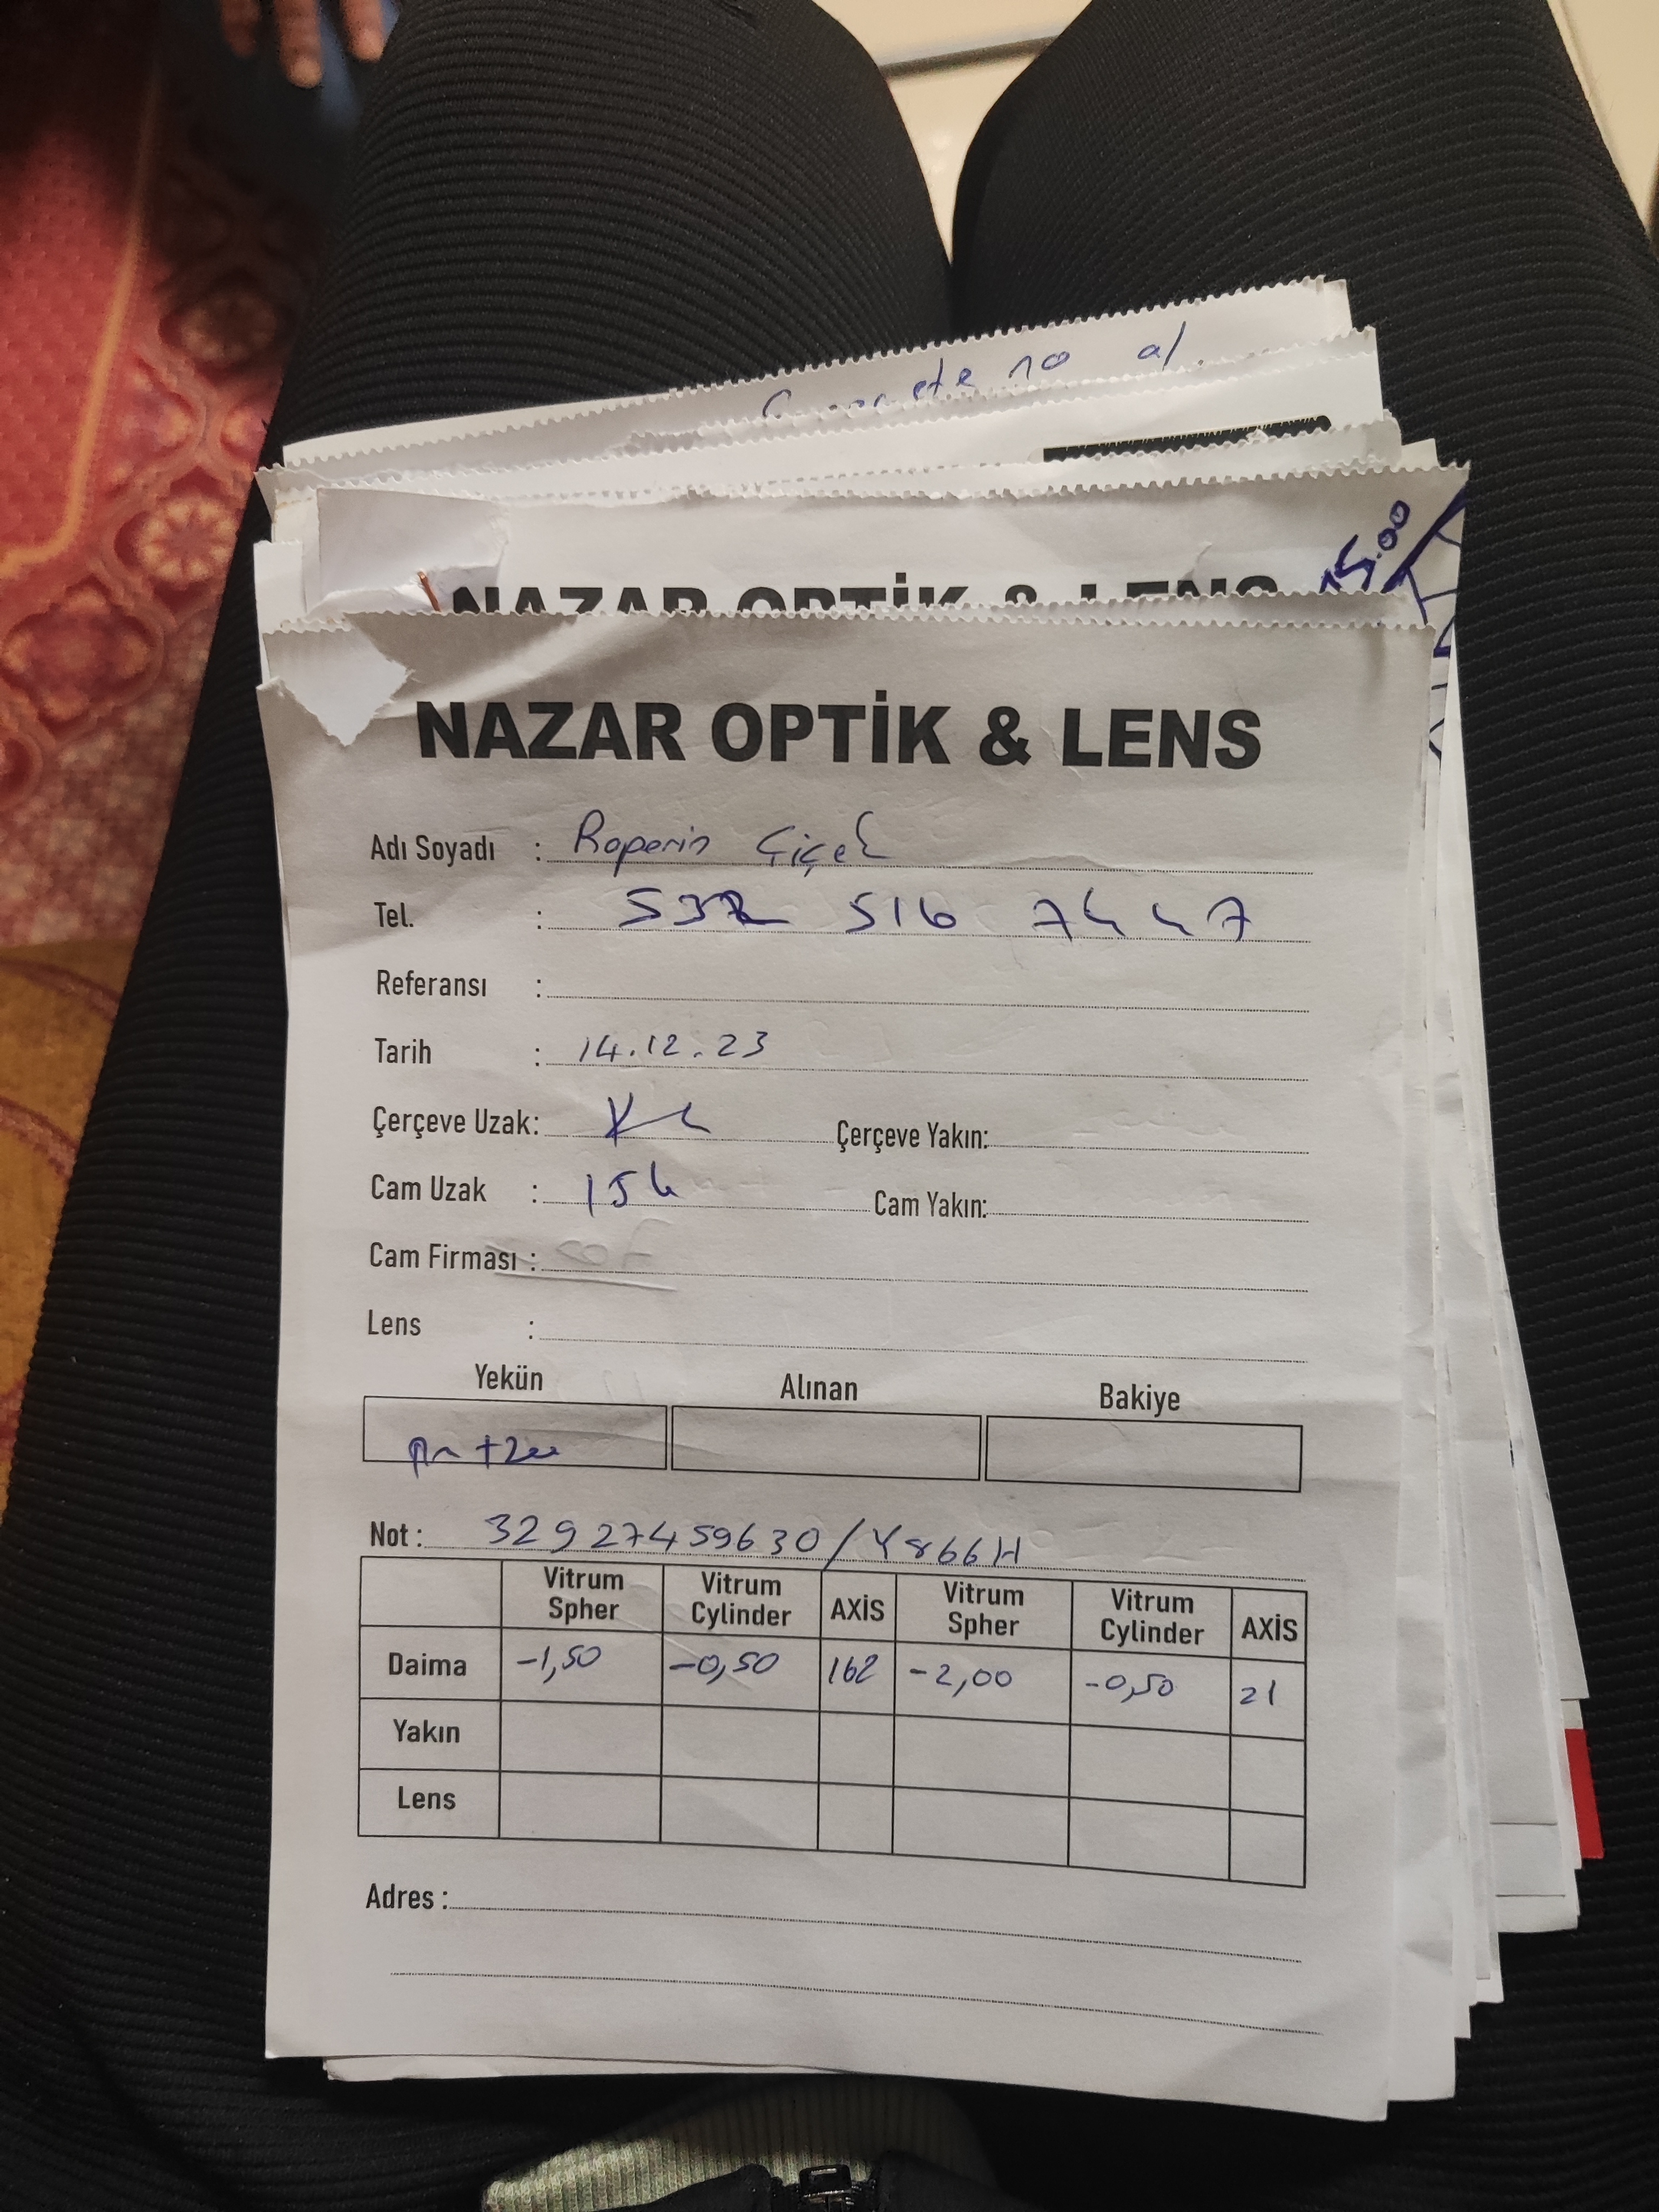 no al.
15.00
NAZAR OPTİK & LENS
NAZAR OPTİK & LENS
Adı Soyadı : Roperin Çiçek
Tel. : 532 516 7447
Referansı :
Tarih : 14.12.23
Çerçeve Uzak: Çerçeve Yakın:
Cam Uzak : 156 Cam Yakın:
Cam Firması :
Lens :
Yekün Alınan Bakiye
Not : 32927459630/Y866H
Vitrum Spher Vitrum Cylinder AXİS Vitrum Spher Vitrum Cylinder AXİS
Daima -1,50 -0,50 162 -2,00 -0,50 21
Yakın
Lens
Adres :